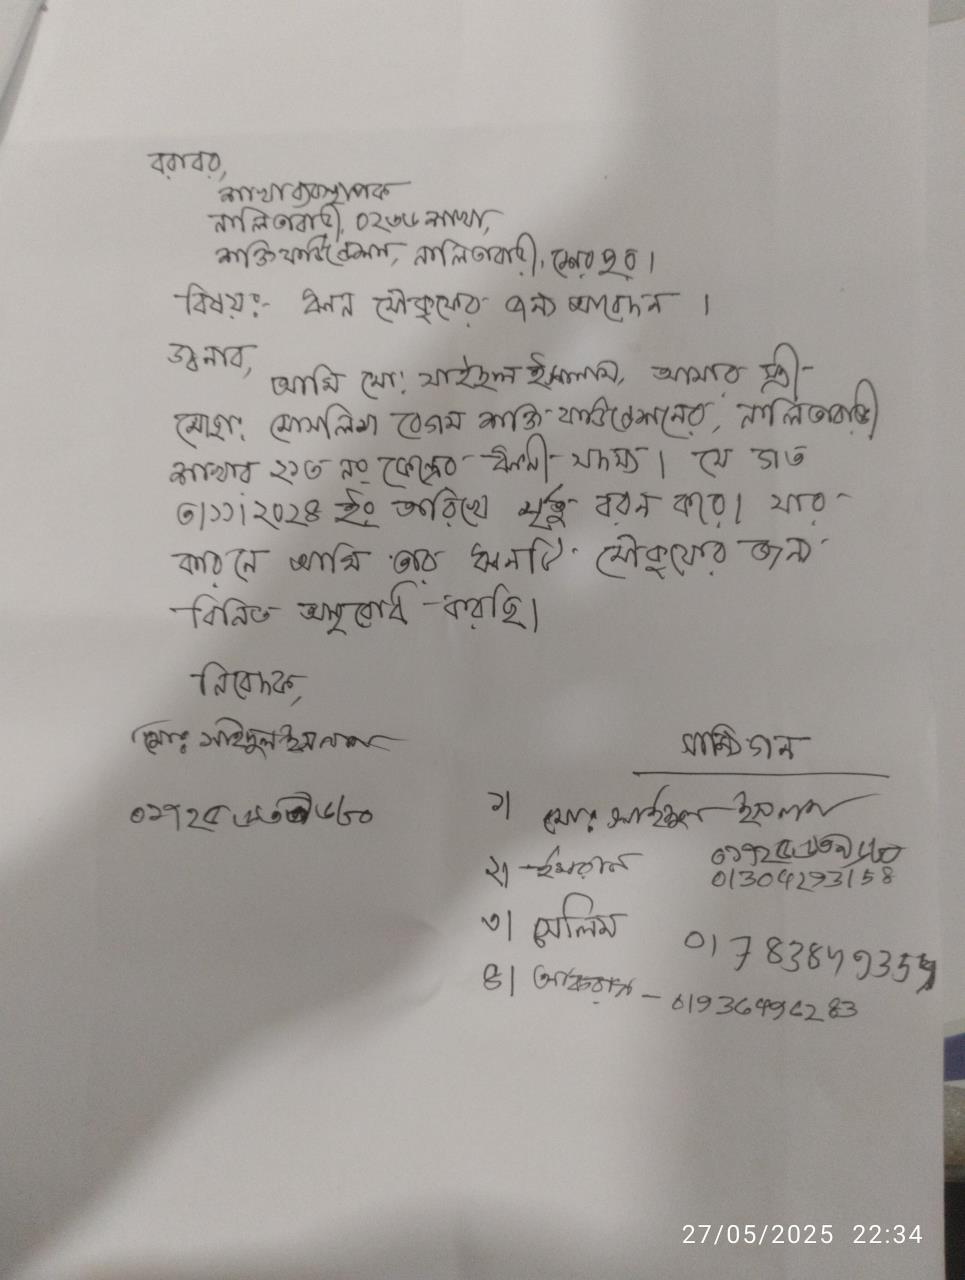 বরাবর,
শাখা ব্যবস্থাপক
নালিতাবাড়ী, ০২৩৬ শাখা,
শক্তি ফাউন্ডেশন, নালিতাবাড়ী, শেরপুর।
বিষয়ঃ- ঋনন মৌকুফের জন্য আবেদন ।
জনাব,
আমি মো: সাইদুল ইসলাম, আমার স্ত্রী
মোছা: মোসলিমা বেগম শক্তি ফাউন্ডেশনের, নালিতাবাড়ী
শাখার ২১৩ নং কেন্দ্রের ঋনী সদস্য। সে গত
৩।১১।২০২৪ ইং তারিখে মৃত্যু বরন করে। যার
কারনে আমি তার ঋনটি মৌকুফের জন্য
বিনিত অনুরোধ করছি।
নিবেদক,
মোঃ সাইদুল ইসলাম
সাক্ষিগন
১। মোঃ সাইদুল ইসলাম
২। ইমরান 01304293158
৩। সেলিম
৪। আকরাম - 01936496283
27/05/2025 22:34